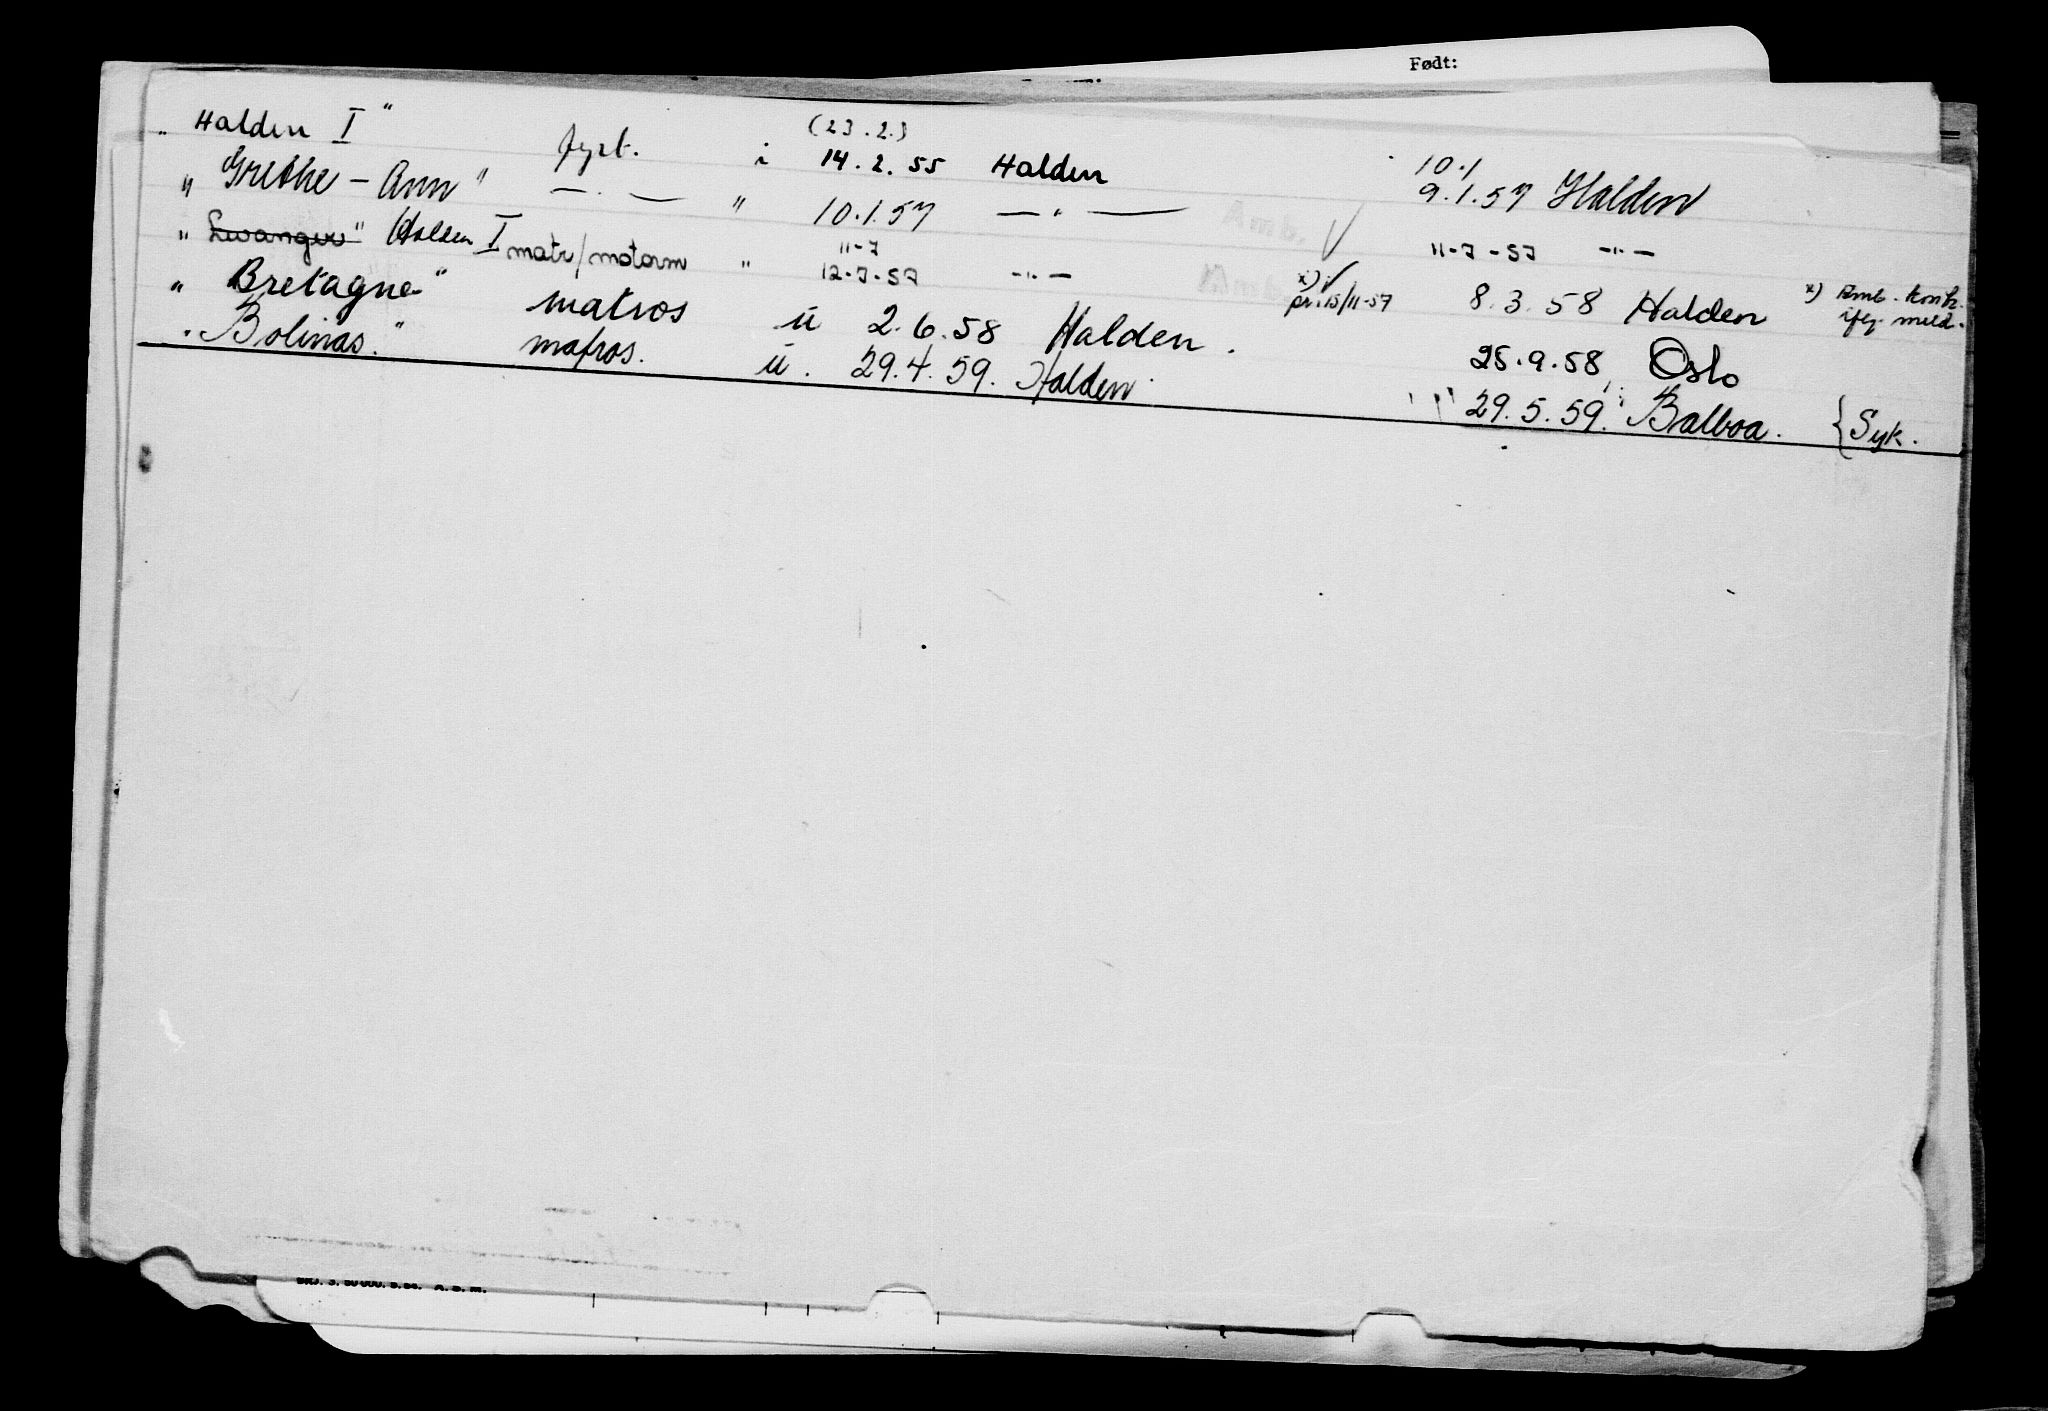 Født:
„ Halden I " fyrb. i (23.2.) 14.2.55 Halden 10.1 9.1.57 Halden
„ Grethe - Ann " — . — " 10.1.57 — " — Amb. 11-7-57 — " —
„ Levanger " Halden I matr/motorm " 11-7 12-7-57 — " — x) pr. 15/11-57 8.3.58 Halden x) Amb. kontr. iflg. meld.
„ Bretagne " matros u 2.6.58 Halden. 25.9.58, Oslo
„ Bolinas. " matros. u. 29.4.59. Halden. 29.5.59. Balboa. {Syk.